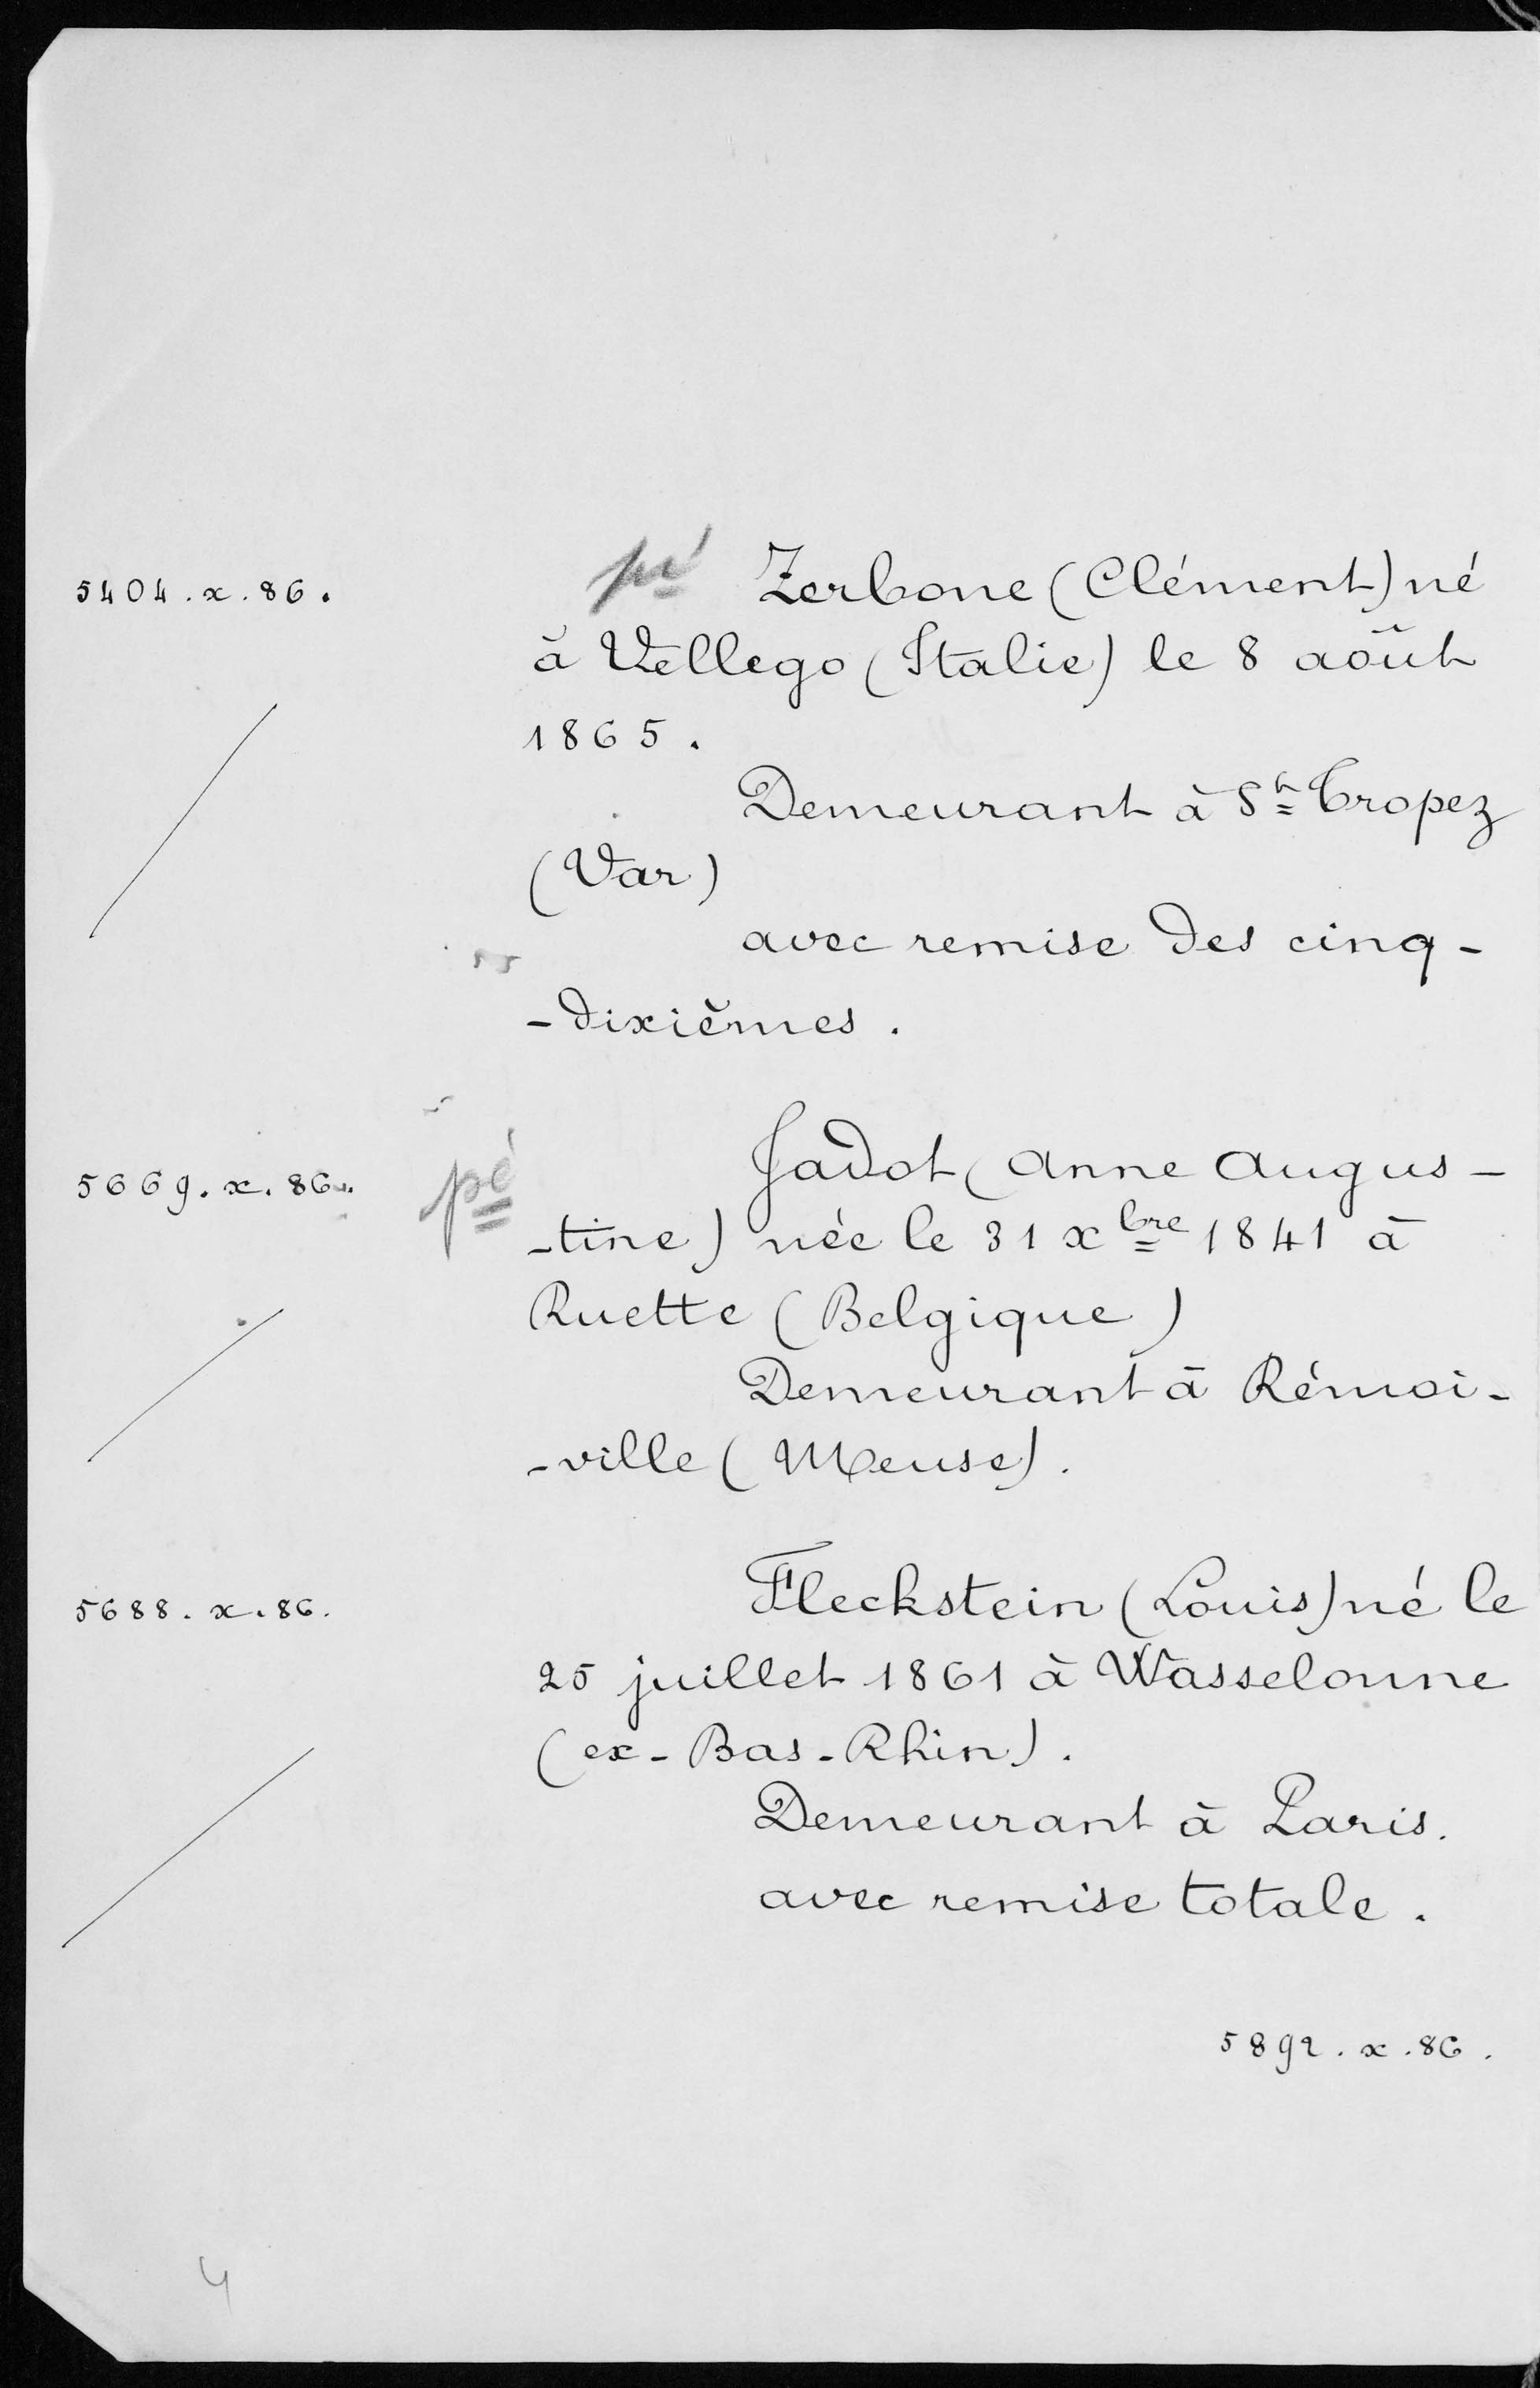 5404.x.86.
pé Zerbone (Clément) né
à Vellego (Italie) le 8 août
1865.
Demeurant à St Tropez
(Var)
avec remise des cinq-
-dixièmes.
5669.x.86.
pé Jadot (Anne Augus-
-tine) née le 31 xbre 1841 à
Ruette (Belgique)
Demeurant à Rémoi-
-ville (Meuse).
5688.x.86.
Fleckstein (Louis) né le
25 juillet 1861 à Wasselonne
(ex-Bas-Rhin).
Demeurant à Paris.
avec remise totale.
5892.x.86.
4